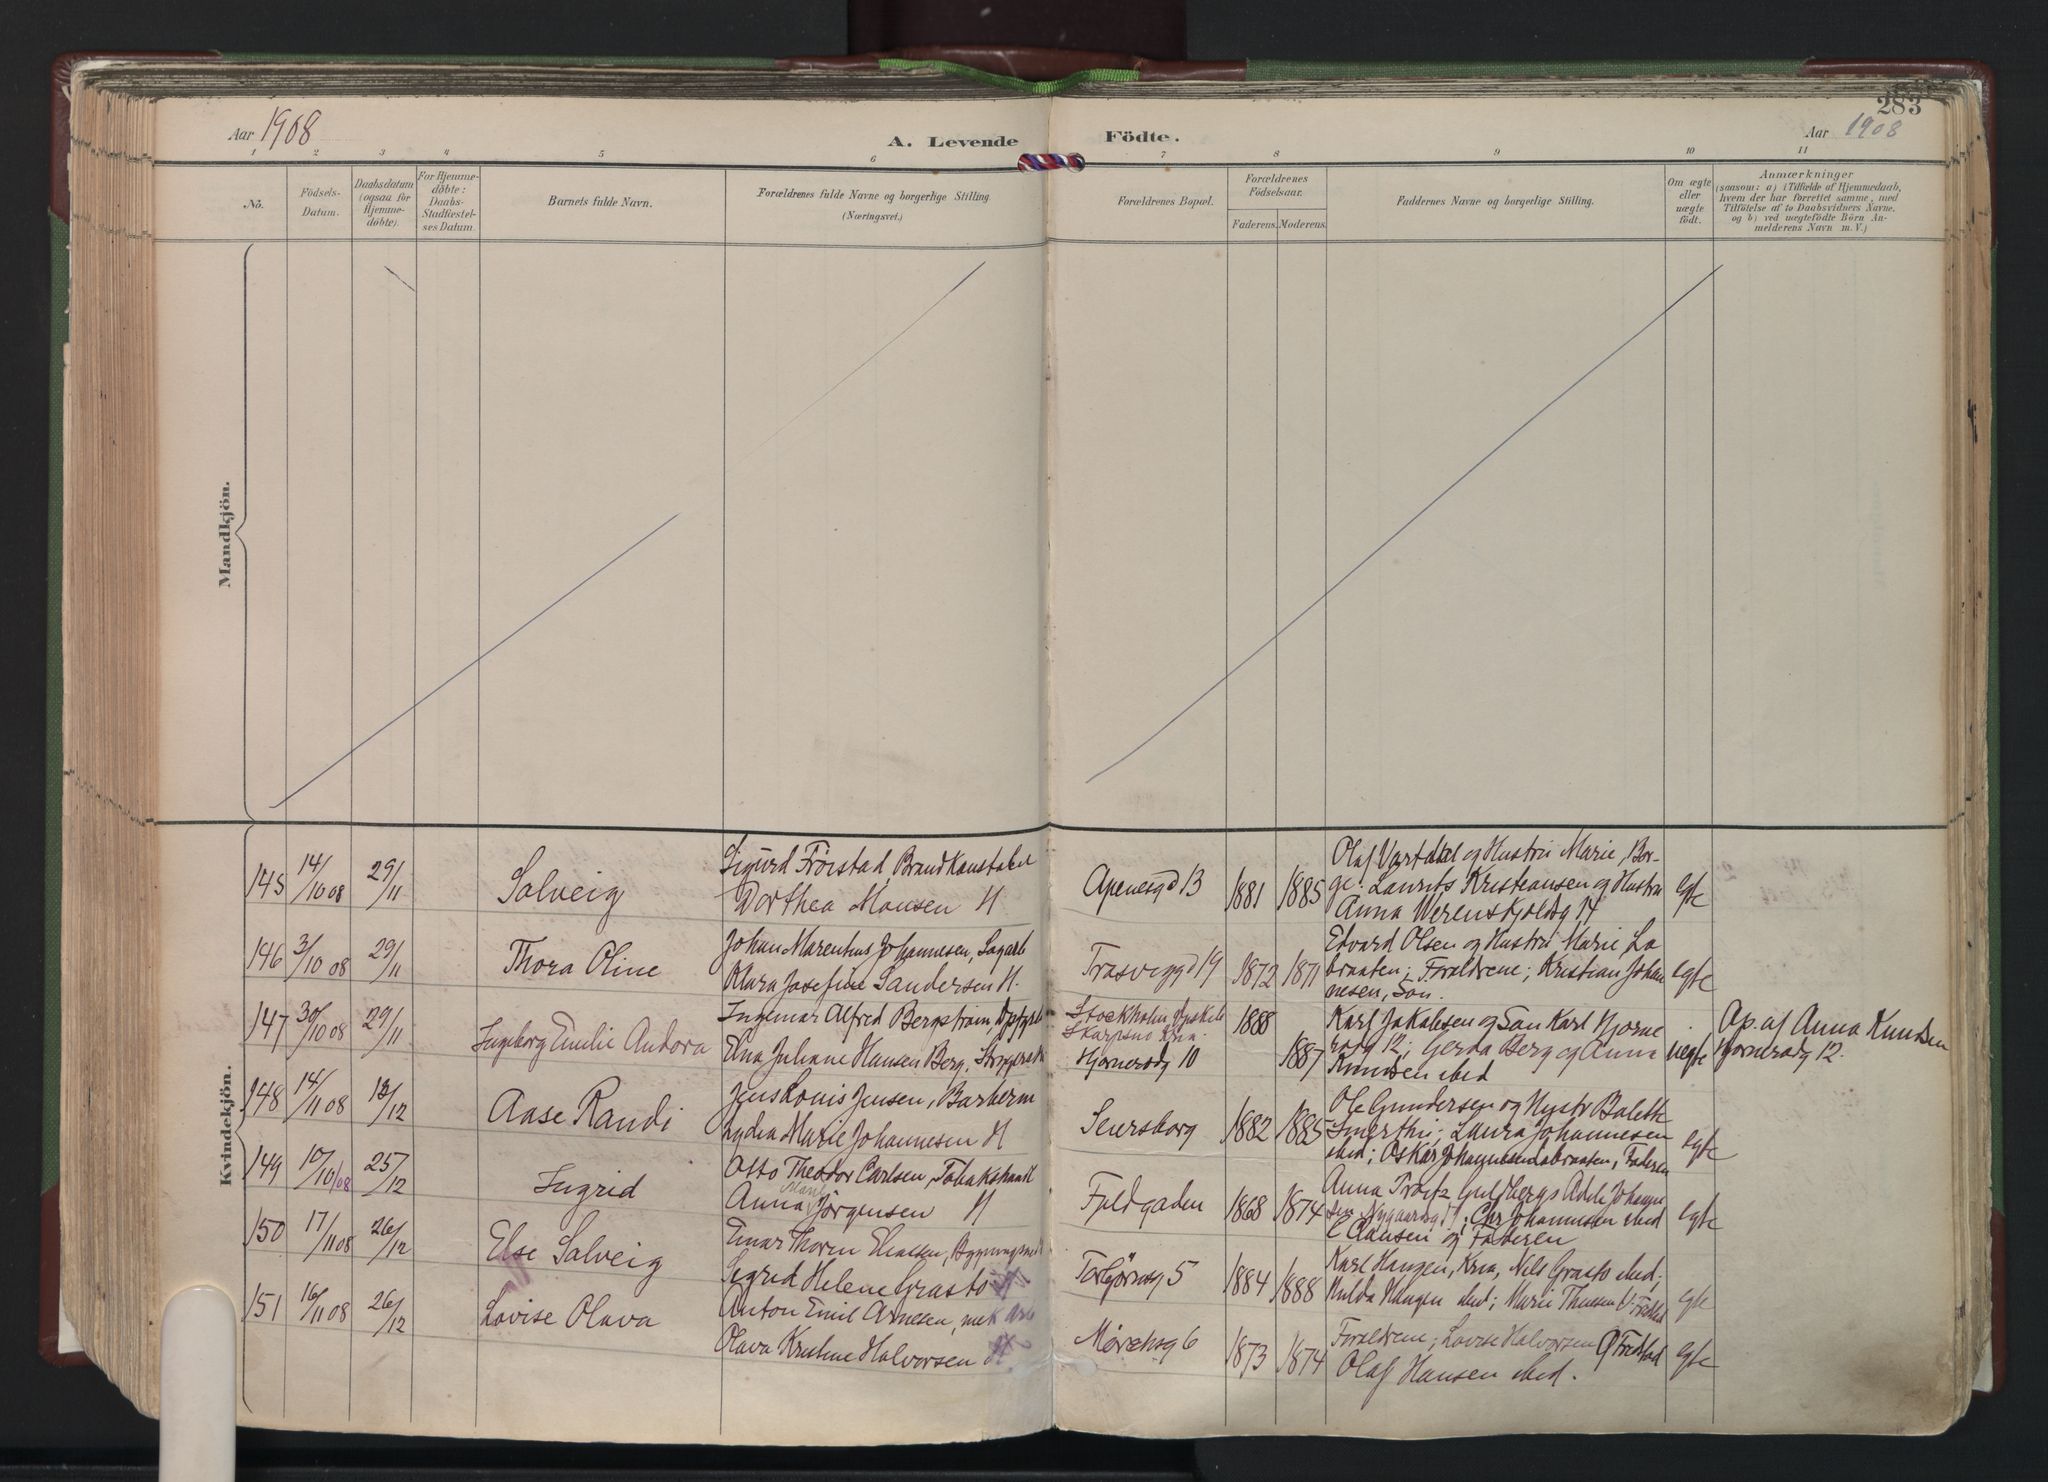 283
Aar 1908
A. Levende Födte.
Aar 1908
1 2 3 4 5 6 7 8 9 10 11
Nö.
Födsels-Datum.
Daabsdatum (ogsaa for Hjemme-döbte).
For Hjemme-döbte: Daabs-Stadfæstel-ses Datum.
Barnets fulde Navn.
Forældrenes fulde Navne og borgerlige Stilling. (Næringsvei.)
Forældrenes Bopæl.
Forældrenes Födselsaar.
Faderens. Moderens.
Faddernes Navne og borgerlige Stilling.
Om ægte eller uægte födt.
Anmærkninger
(saasom: a) i Tilfælde af Hjemmedaab,
hvem der har forrettet samme, med
Tilföielse af to Daabsvidners Navne.
og b) ved uægtefödte Börn An-
melderens Navn m. V.)
Mandkjön.
Kvindekjön.
145 14/10 08 29/11 Solveig
Sigurd Fröistad, Brandkonstabel
Dorthea Monsen H
Apenesgd 13 1881 1885
Olaf Vartdal og Hustru Marie, Bor-
ge; Laurits Kristiansen og Hustru
Anna Werenskjoldsg 14
egte
146 3/10 08 29/11 Thora Oline
Johan Marentius Johannesen, Sagarb
Klara Josefine Sandersen H.
Trosveggd 19 1872 1871
Edvard Olsen og Hustru Marie La
braaten; Foraldrene; Kristian Johan
nesen, Sön.
egte
147 30/10 08 29/11 Ingeborg Emilie Andora
Ingemar Alfred Bergström,
Elna Juliane Hansen Berg,
Stockholm
Skarpsno Kria
Hjornerodg 10
1888 1887
Karl Jakobsen og Sön Karl Hjorne
rodg 12; Gerda Berg og Anna
Knudsen ibid
uegte
Ap. af Anna Knudsen
Hjornerodg 12.
148 14/11 08 13/12 Aase Randi
Jens Louis Jensen, Barberm
Lydia Marie Johannesen H
Seiersborg 1882 1885
Ole Gundersen og Hustr Bolette
Laura Johannesen
ibid; Oskar Johannesen Labraaten, Faderen
egte
149 10/10 08 25/12 Ingrid
Otto Theodor Carlsen, Tobakshandl
Anna Jörgensen H
Fjeldgaden 1868 1874
Anna Guldbergs Adele Johanne
sen Nygaardsgd; Chr Johannesen ibid
C Hansen og Faderen
egte
150 17/11 08 26/12 Else Solveig
Einar Thorin Eliassen,
Sigrid Helene Grastö H
Torbjörnsg 5 1884 1888
Karl Haugen, Kria, Nils Grastö ibid;
Hulda Haugen ibid; Marie Thuesen V. Fredstad
egte
151 16/11 08 26/12 Lovise Olava
Anton Emil Arnesen, mek Arb
Olava Kristine Halvorsen H.
Mörchsg 6 1873 1874
Foraldrene; Lovise Halvorsen Ø Fredstad
Olaf Hansen ibid.
egte